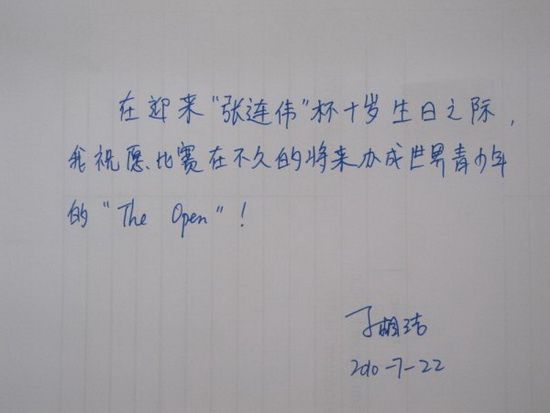 在迎来“张连伟”杯十岁生日之际，
我祝愿比赛在不久的将来办成世界青少年
的“The Open”！
2010-7-22